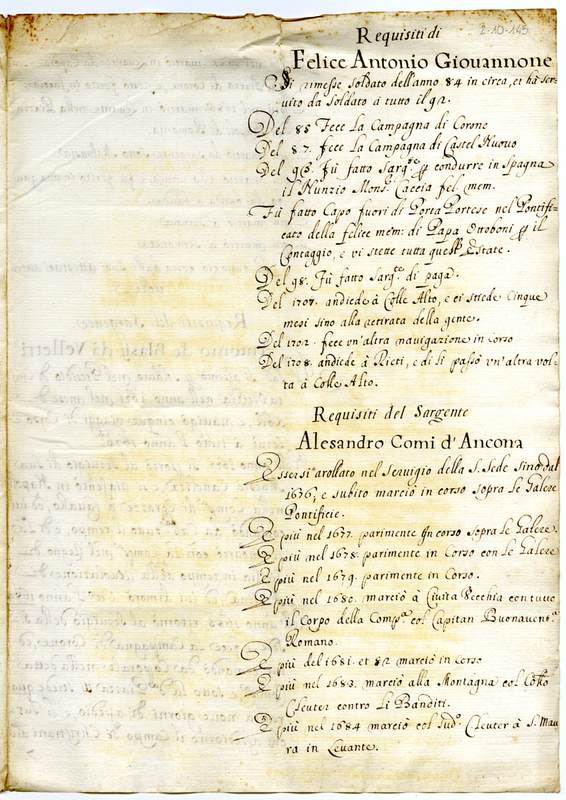 2-10-145
Requisiti di
Felice Antonio Giouannone
Si rimesse soldato dell'anno 84 in circa, et hà ser-
uito da soldato à tutto il 92.
Del 85 Fece La Campagna di Corone
Del 87. fece La Campagna di Castel Nuouo
Del Fù fatto Sarg.te condurre in Spagna
il Nunzio Mons. Caccia fel. mem.
Fù fatto Capo fuori di Porta Portese nel Pontifi-
cato della felice mem: di Papa Ottoboni il
Contaggio, e vi stette tutta Estate.
Del 98. Fù fatto Sarg.te di paga.
Del 1707. andiede à Colle Alto, e ci stiede Cinque
mesi sino alla retirata della gente.
Del 1702. fece un'altra nauigazione in corso
Del 1708. andiede à Rieti, e di lì passò vn'altra vol-
ta à Colle Alto.
Requisiti del Sargente
Alesandro Comi d'Ancona
Essersi arollato nel seruigio della S. Sede sino dal
1676, e subito marciò in corso sopra le Galere
Pontificie.
E più nel 1677. parimente in corso sopra le Galere.
E più nel 1678. parimente in Corso con le Galere
E più nel 1679. parimente in Corso.
E più nel 1680. marciò à Ciuita Vecchia con tutto
il Corpo della Comp.a col Capitan Buonauent.a
Romano.
E più del 1681. et 82 marciò in corso
E più nel 1683. marciò alla Montagna col
Cleuter contro li Banditi.
E più nel 1684 marciò col Sud.o Cleuter à S. Mau
ra in Leuante.